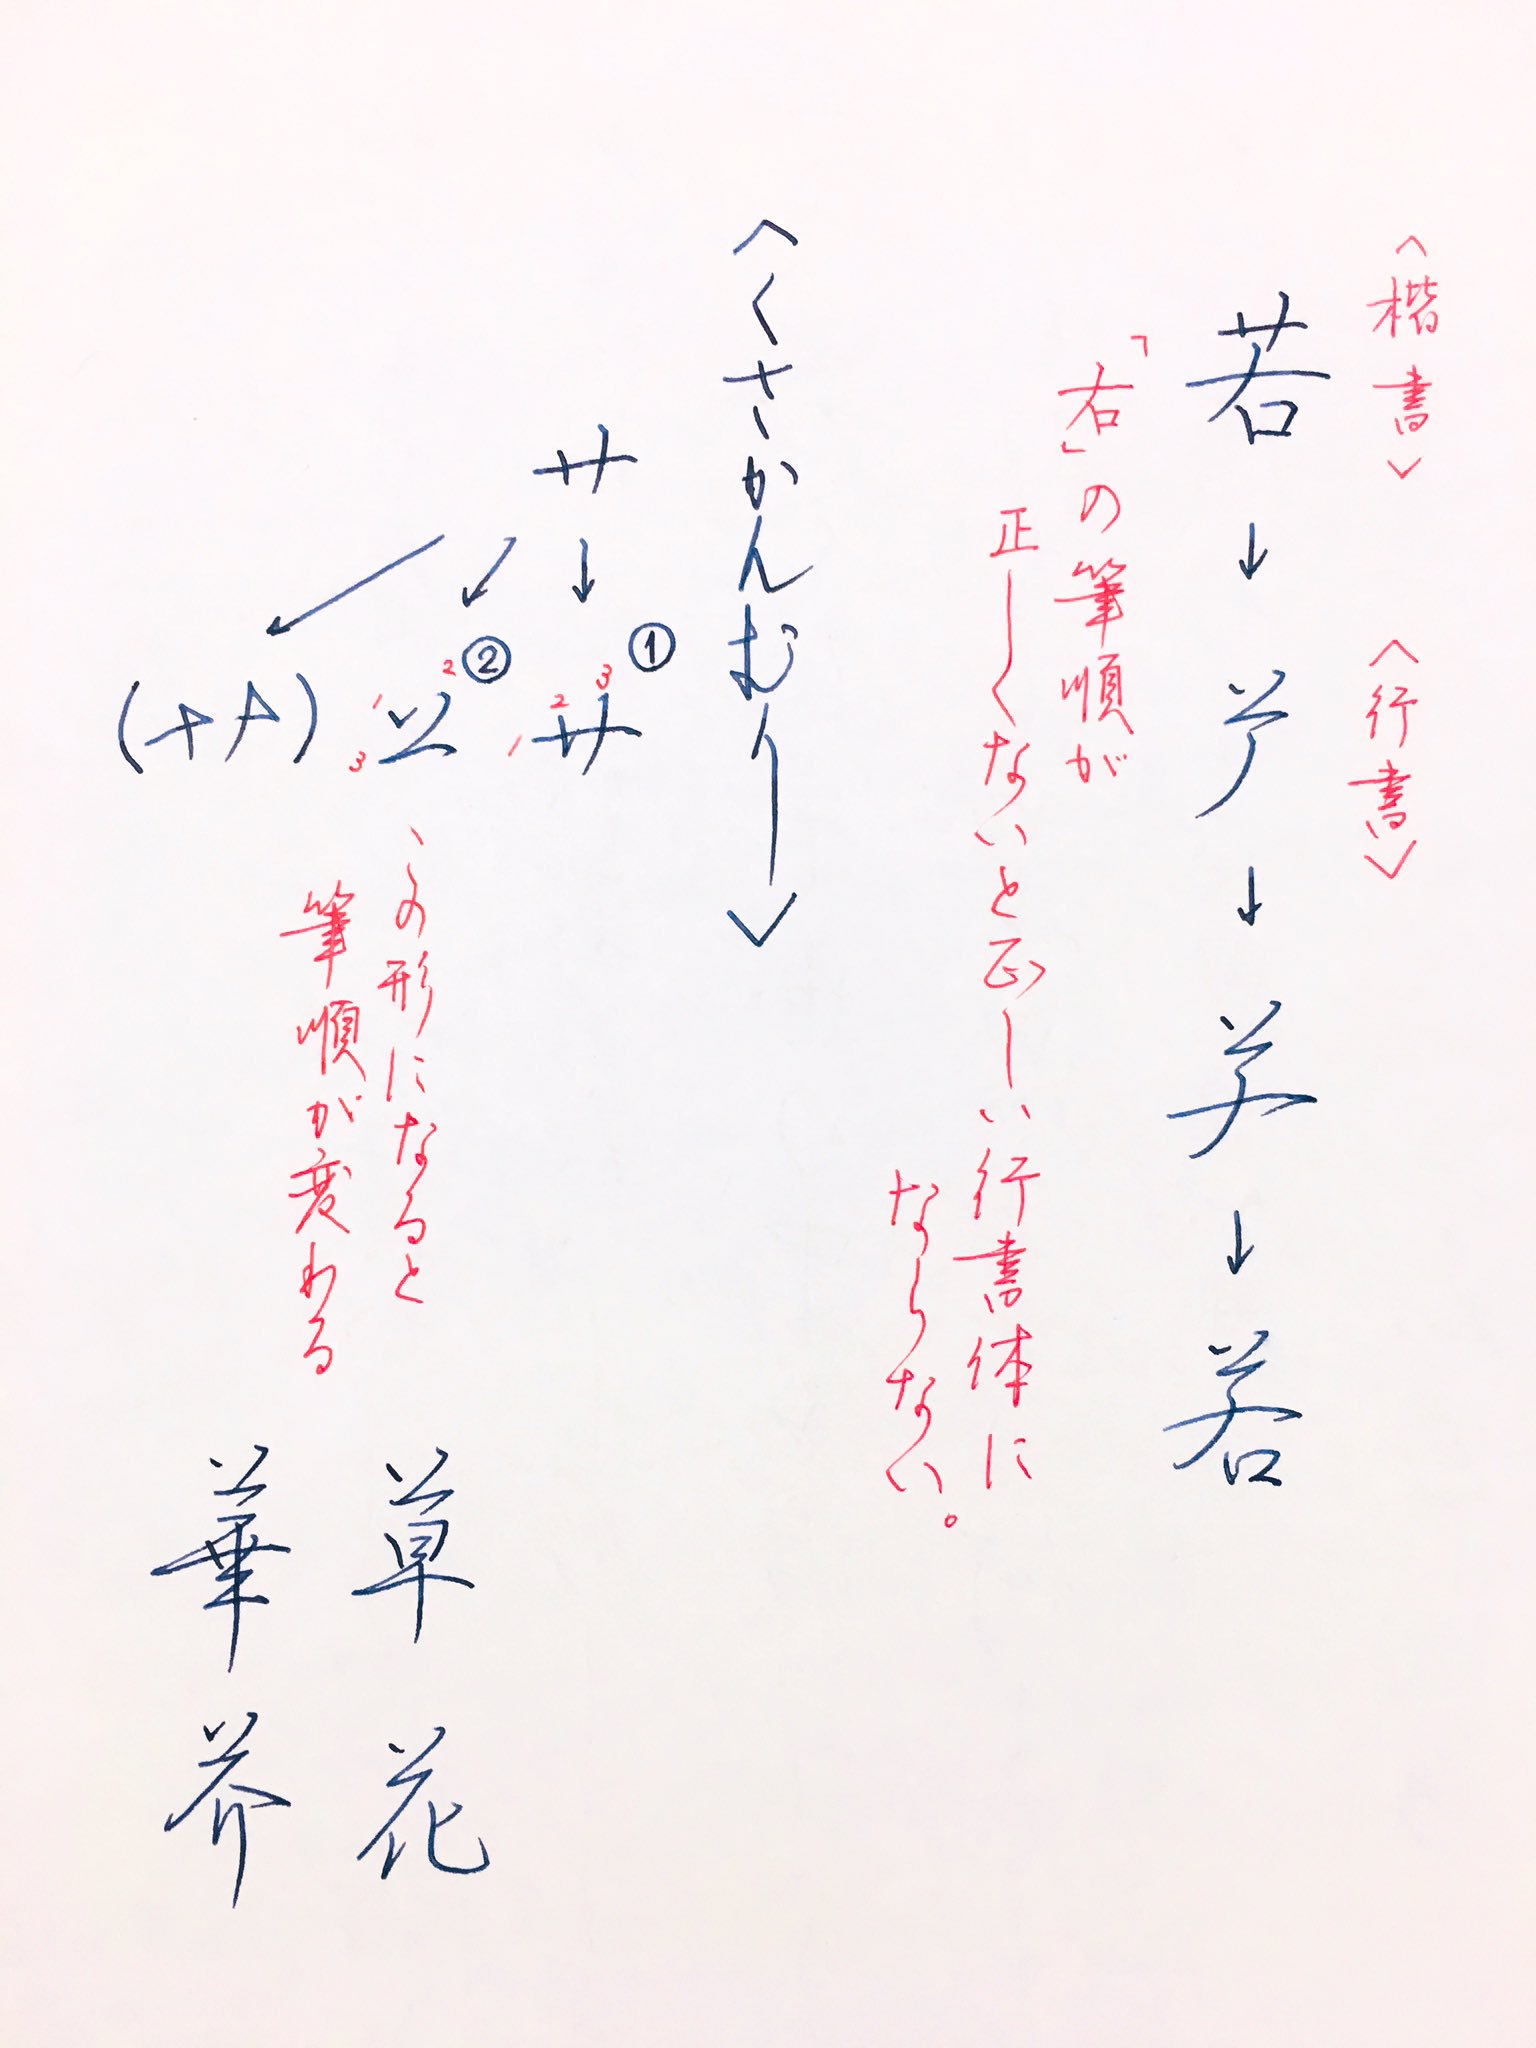 〈楷書〉 〈行書〉
若→→→若
「右」の筆順が
正しくないと正しい行書体に
ならない。
〈くさかんむり〉
艹
① 1 2 3
② 1 2 3
この形になると
筆順が変わる
草花
華芥